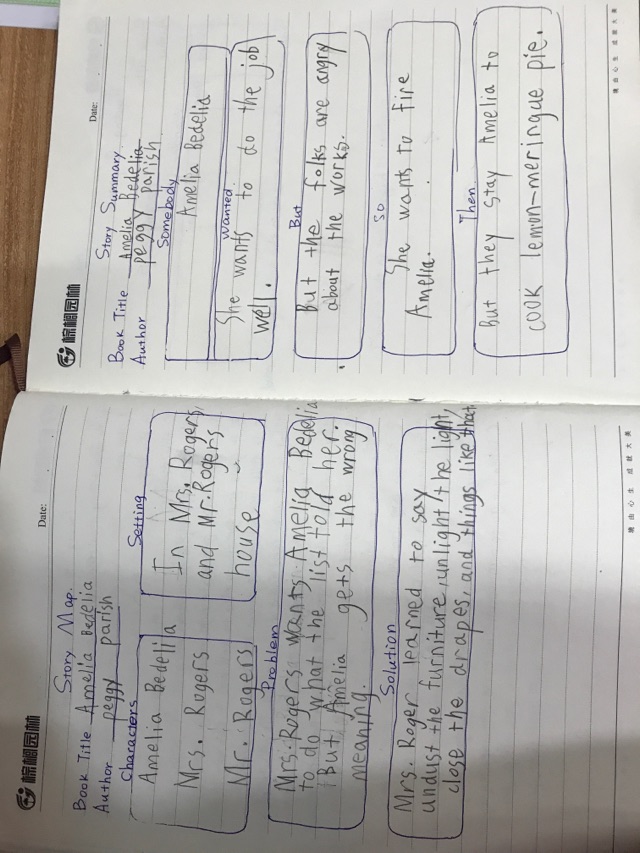 棕榈园林
Date:
Story Map
Book Title Amelia Bedelia
Author peggy parish
Characters
Amelia Bedelia
Mrs. Rogers
Mr. Rogers
Setting
In Mrs. Rogers
and Mr. Rogers
house
Problem
Mrs. Rogers wants Amelia Bedelia
to do what the list told her.
But Amelia gets the wrong
meaning.
Solution
Mrs. Roger learned to say
undust the furniture, unlight the light,
close the drapes, and things like that
境由心生 成就大美
棕榈园林
Date:
Story Summary
Book Title Amelia Bedelia
Author peggy parish
Somebody
Amelia Bedelia
Wanted
She wants to do the job
well.
But
But the folks are angry
about the works.
So
She wants to fire
Amelia.
Then
But they stay Amelia to
cook lemon-meringue pie.
境由心生 成就大美